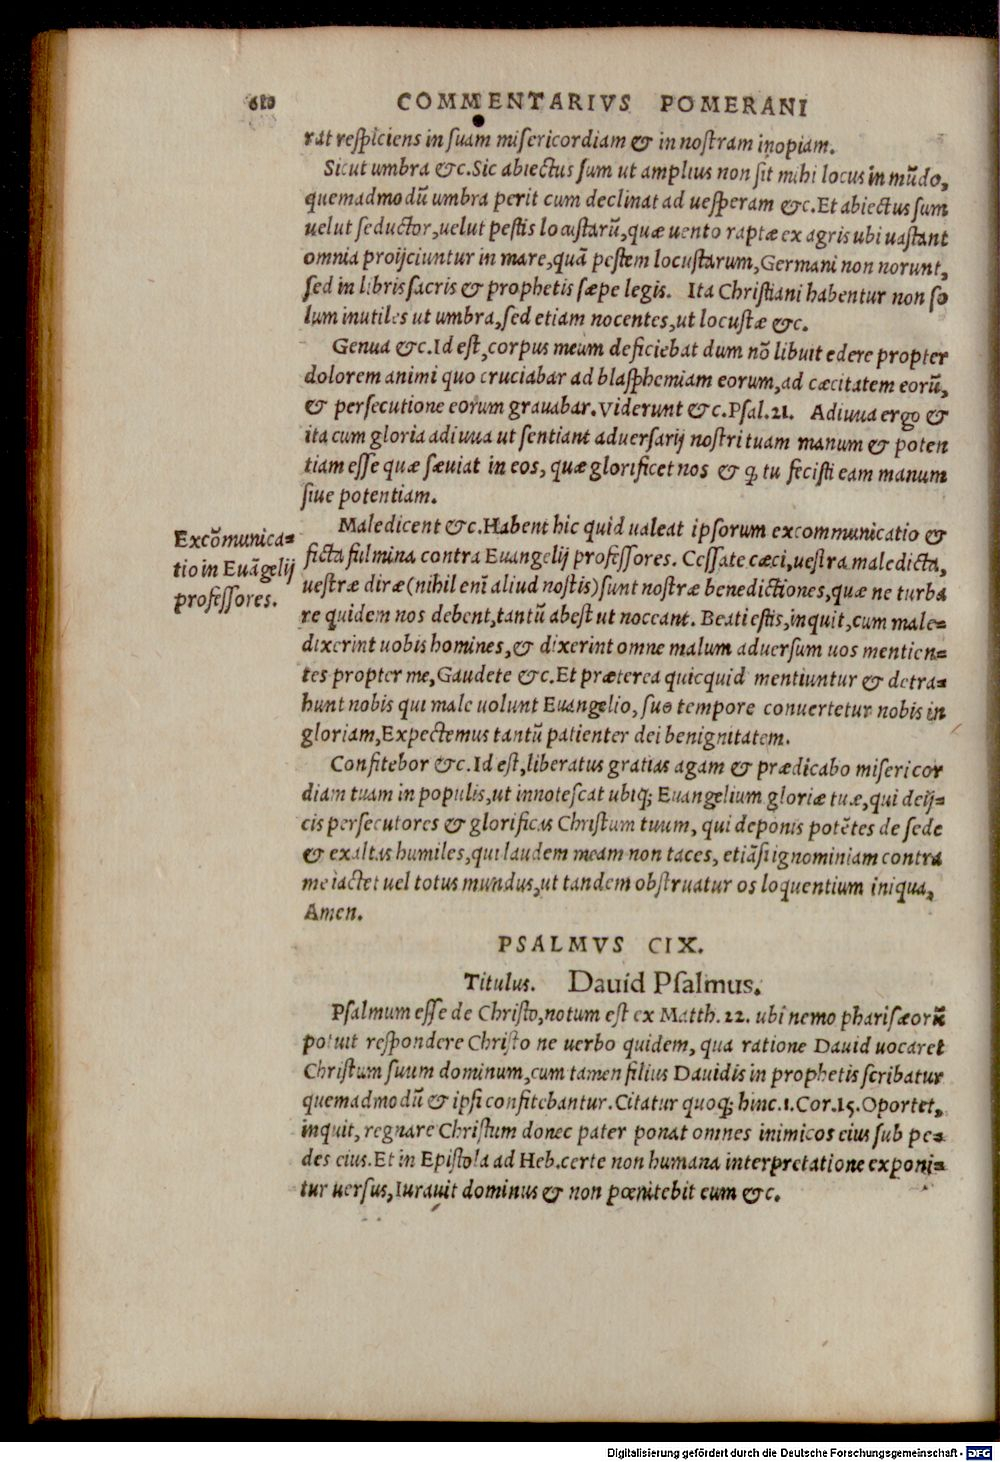 610 COMMENTARIVS POMERANI
rat respiciens in suam misericordiam & in nostram inopiam.
Sicut umbra &c. Sic abiectus sum ut amplius non sit mihi locus in mūdo,
quemadmodū umbra perit cum declinat ad uesperam &c. Et abiectus sum
uelut seductor, uelut pestis locustarū, quæ uento raptæ ex agris ubi uastant
omnia proijciuntur in mare, quā pestem locustarum, Germani non norunt,
sed in libris sacris & prophetis sæpe legis. Ita Christiani habentur non so
lum inutiles ut umbra, sed etiam nocentes, ut locustæ &c.
Genua &c. Id est, corpus meum deficiebat dum nō libuit edere propter
dolorem animi quo cruciabar ad blasphemiam eorum, ad cæcitatem eorū,
& persecutione eorum grauabar. Viderunt &c. Psal. 21. Adiuua ergo &
ita cum gloria adiuua ut sentiant aduersarij nostri tuam manum & poten
tiam esse quæ sæuiat in eos, quæ glorificet nos & ꝙ tu fecisti eam manum
siue potentiam.
Maledicent &c. Habent hic quid ualeat ipsorum excommunicatio &
ficta fulmina contra Euangelij professores. Cessate cæci, uestra maledicta,
uestræ diræ (nihil enī aliud nostis) sunt nostræ benedictiones, quæ ne turba
re quidem nos debent, tantū abest ut noceant. Beati estis, inquit, cum male=
dixerint uobis homines, & dixerint omne malum aduersum uos mentien=
tes propter me, Gaudete &c. Et præterea quicquid mentiuntur & detra=
hunt nobis qui male uolunt Euangelio, suo tempore conuertetur nobis in
gloriam, Expectemus tantū patienter dei benignitatem.
Excōmunica=
tio in Euāgelij
professores.
Confitebor &c. Id est, liberatus gratias agam & prædicabo misericor
diam tuam in populis, ut innotescat ubiq; Euangelium gloriæ tuæ, qui deij=
cis persecutores & glorificas Christum tuum, qui deponis potētes de sede
& exaltas humiles, qui laudem meam non taces, etiāsi ignominiam contra
me iactet uel totus mundus, ut tandem obstruatur os loquentium iniqua,
Amen.
PSALMVS CIX.
Titulus. Dauid Psalmus.
Psalmum esse de Christo, notum est ex Matth. 22. ubi nemo pharisæorū
potuit respondere Christo ne uerbo quidem, qua ratione Dauid uocaret
Christum suum dominum, cum tamen filius Dauidis in prophetis scribatur
quemadmodū & ipsi confitebantur. Citatur quoq; hinc. 1. Cor. 15. Oportet,
inquit, regnare Christum donec pater ponat omnes inimicos eius sub pe=
des eius. Et in Epistola ad Heb. certe non humana interpretatione exponi=
tur uersus, Iurauit dominus & non pœnitebit eum &c.
Digitalisierung gefördert durch die Deutsche Forschungsgemeinschaft - DFG